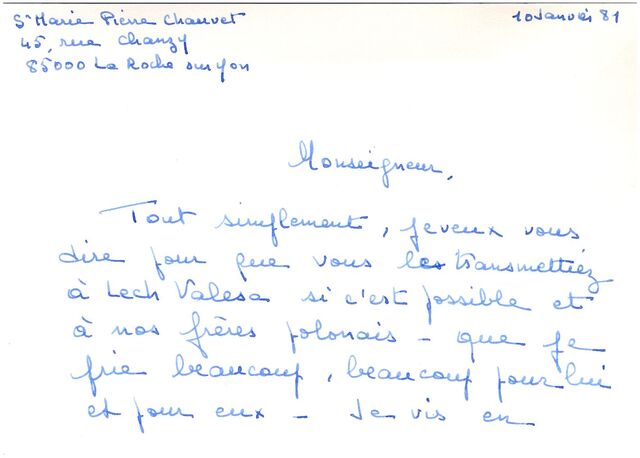 Sr Marie Pierre Chauvet
10 Janvier 81
45, rue Chanzy
85000 La Roche sur yon
Monseigneur,
Tout simplement, je veux vous
dire pour que vous les transmettiez
à Lech Valesa si c'est possible et
à nos frères polonais - que je
prie beaucoup, beaucoup pour lui
et pour eux - Je vis en